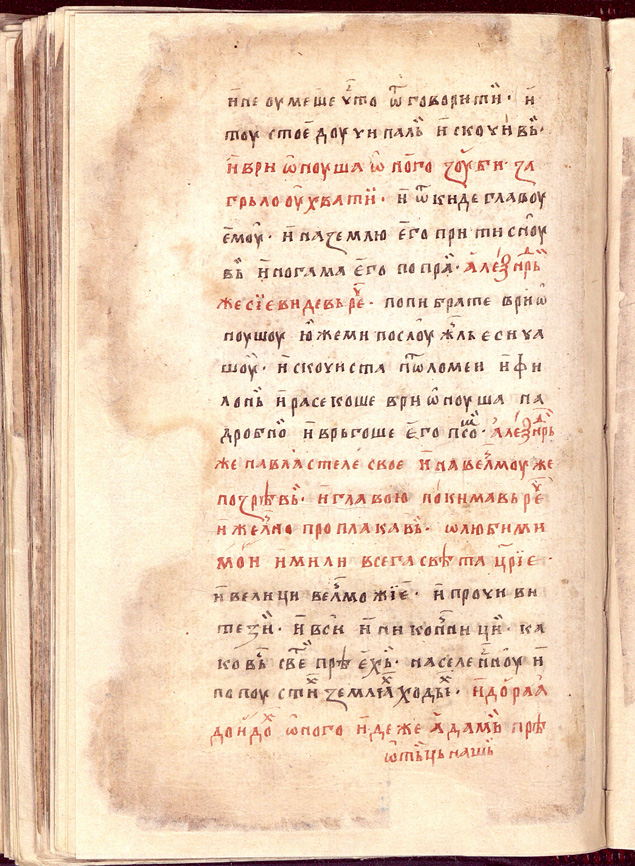 и҆ не оумеше что ѿговорити · и҆
тоу стое доуѵипаль и҆ скочивь ·
и҆ врїѡноуша ѡ҆ного зоуби за
грьло оу҆хвати · и҆ ѿкиде главоу
е҆моу · и҆ на землю е҆го притисноу
вь и҆ ногама е҆го попра · але҆ѯндрь
же сїе видевь рече · попи брате врїѡ
ноушоу
и҆ скочиста птоломеи и҆ фи
лонь и҆ расекоше врїѡноуша на
дробно и҆ врьгоше е҆го псом · але҆ѯндрь
же на властеле свое и҆ на велмоуже
позрѣвь · и҆ главою покимавь рече
и҆ желно проплакавь · ѡ любими
мои и҆ мили всега свѣта царїе ·
и҆ велици велможїе · и҆ прочи ви
тези · и҆ вси и҆ миконици · ка
ковь свет прѣехь · населенноу и҆
по поустих землꙗх ходих · и҆ до раꙗ
доидох ѡ҆ного и҆деже а҆дамь прѣ
ѡтьць нашь